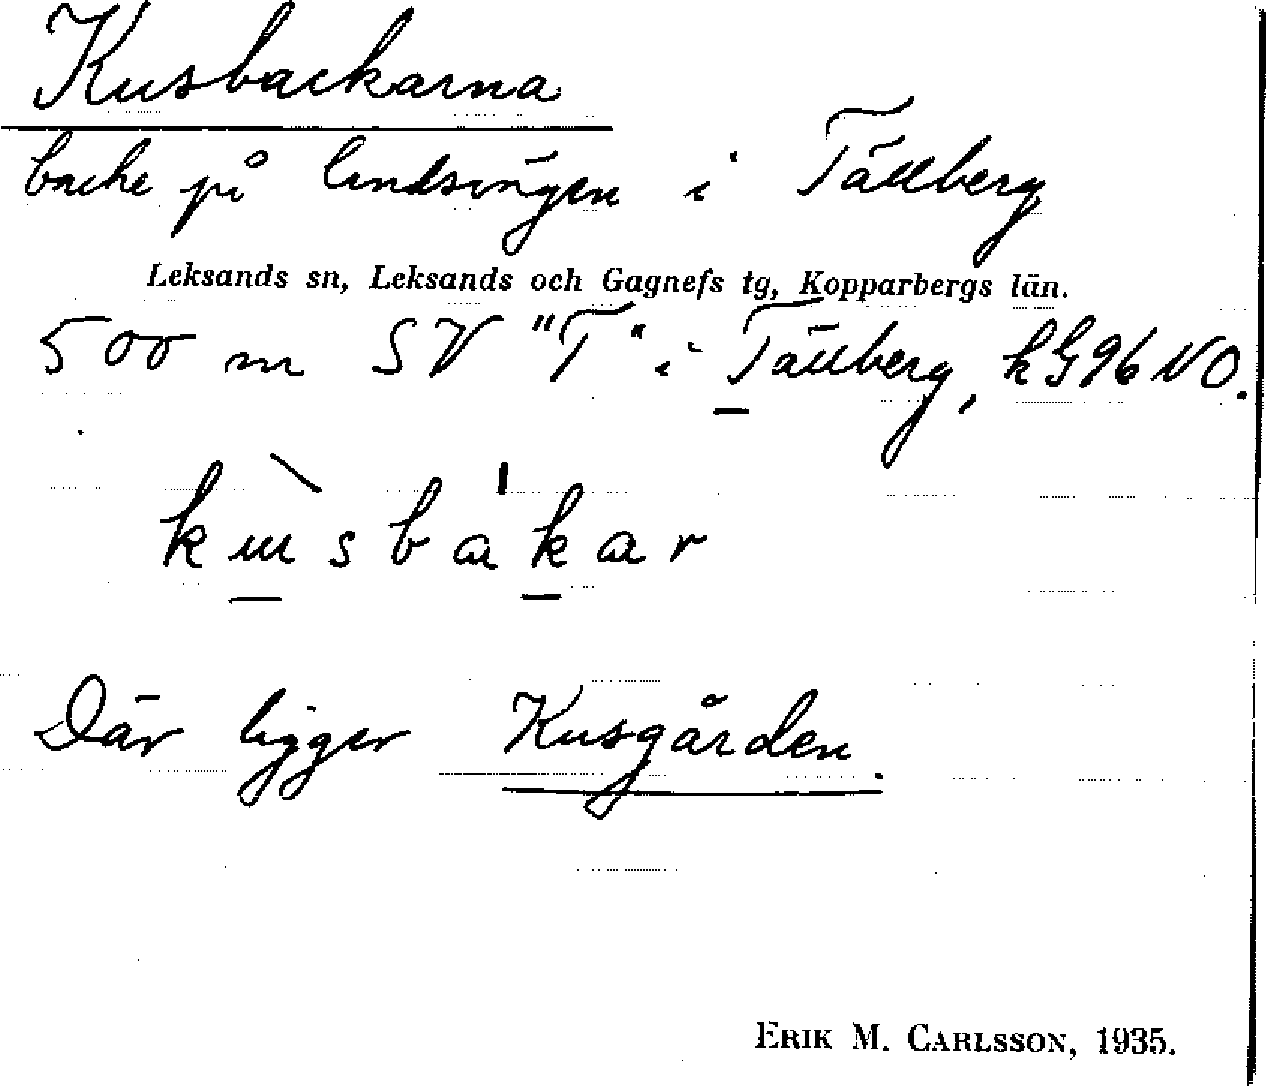 Kusbackarna
backe på landsvägen i Tällberg
Leksands sn, Leksands och Gagnefs tg, Kopparbergs län.
500 m SV "T" i Tällberg, kG96 NO.
kùsbákar
Där ligger Kusgården.
ERIK M. CARLSSON, 1935.